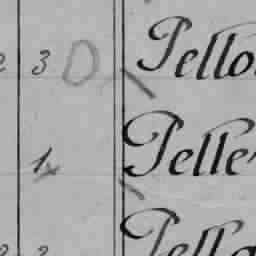 3 D Pello
1 Pelle
2 Pella